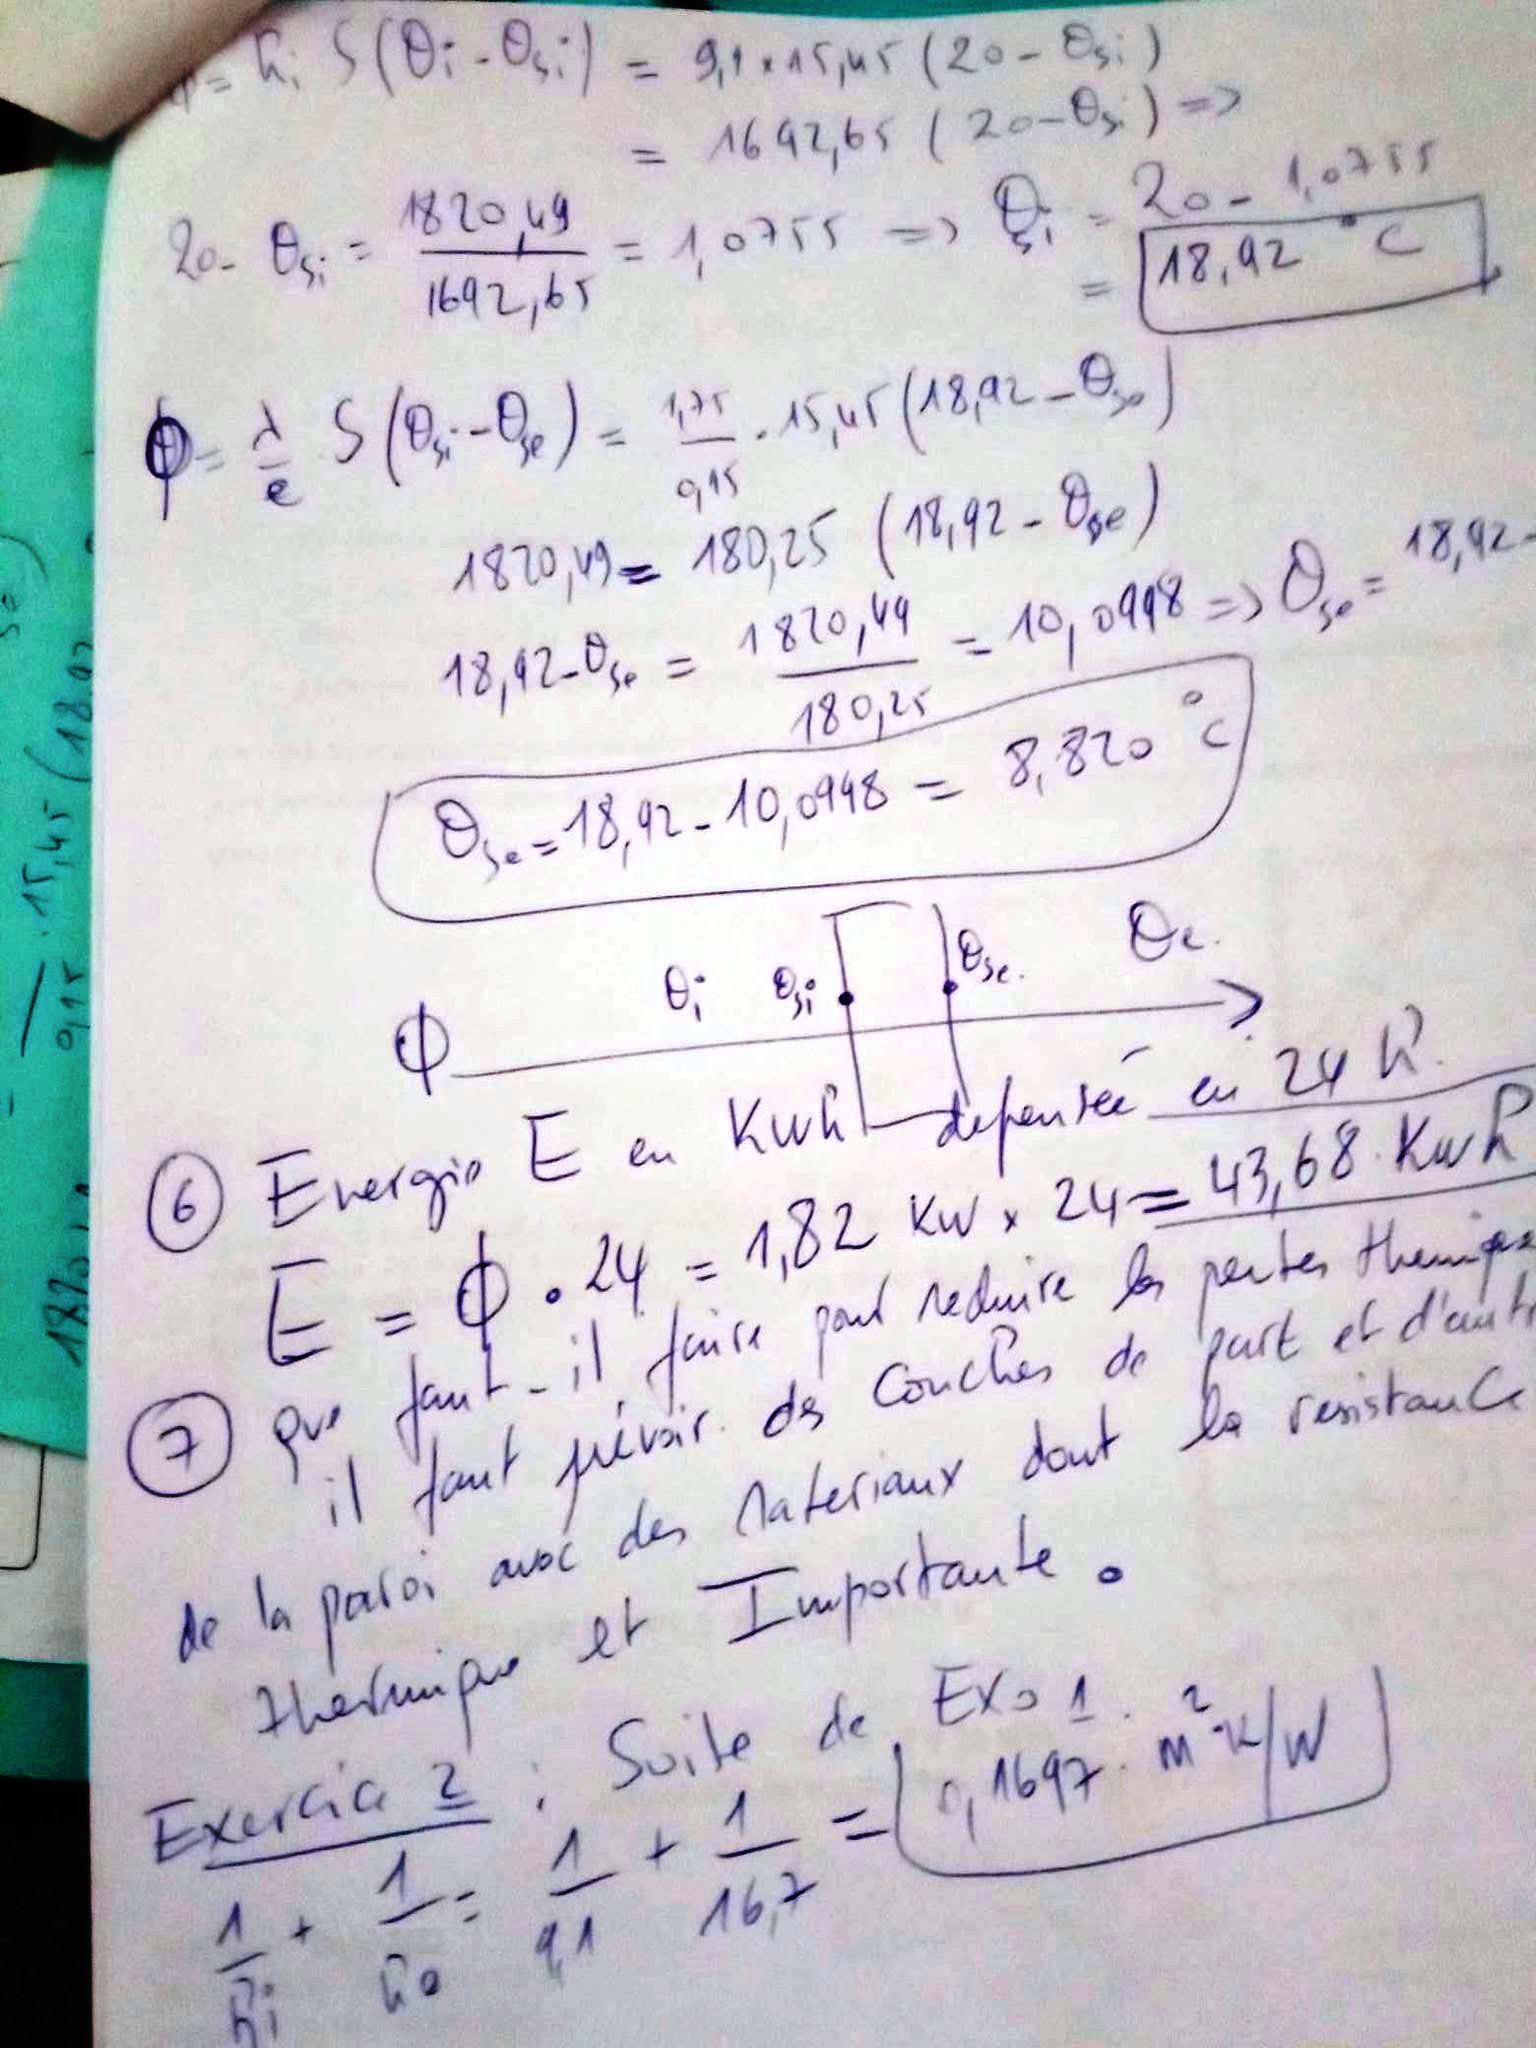 ϕ = hi S(θi - θsi) = 9,1 × 15,45 (20 - θsi)
= 1692,65 (20 - θsi) =>
20 - θsi = 1820,49 / 1692,65 = 1,0755 => θsi = 20 - 1,0755
= 18,92 °C
ϕ = λ/e S(θsi - θse) = 1,75/0,15 . 15,45 (18,92 - θse)
1820,49 = 180,25 (18,92 - θse)
18,92 - θse = 1820,49 / 180,25 = 10,0998 => θse = 18,92 -
θse = 18,92 - 10,0998 = 8,820 °C
θi θsi θse. θe.
ϕ
6 Energie E en Kwh depensée en 24 h.
E = ϕ . 24 = 1,82 KW × 24 = 43,68 Kwh
7 que faut-il faire pour reduire les pertes
il faut prévoir des couches de part et
de la paroi avec des materiaux dont la resistance
thermique et Importante.
Exercice 2 : Suite de Exo 1.
1/hi + 1/he = 1/9,1 + 1/16,7 = 0,1697. m²K/W
0,15 . 15,45 (18,92